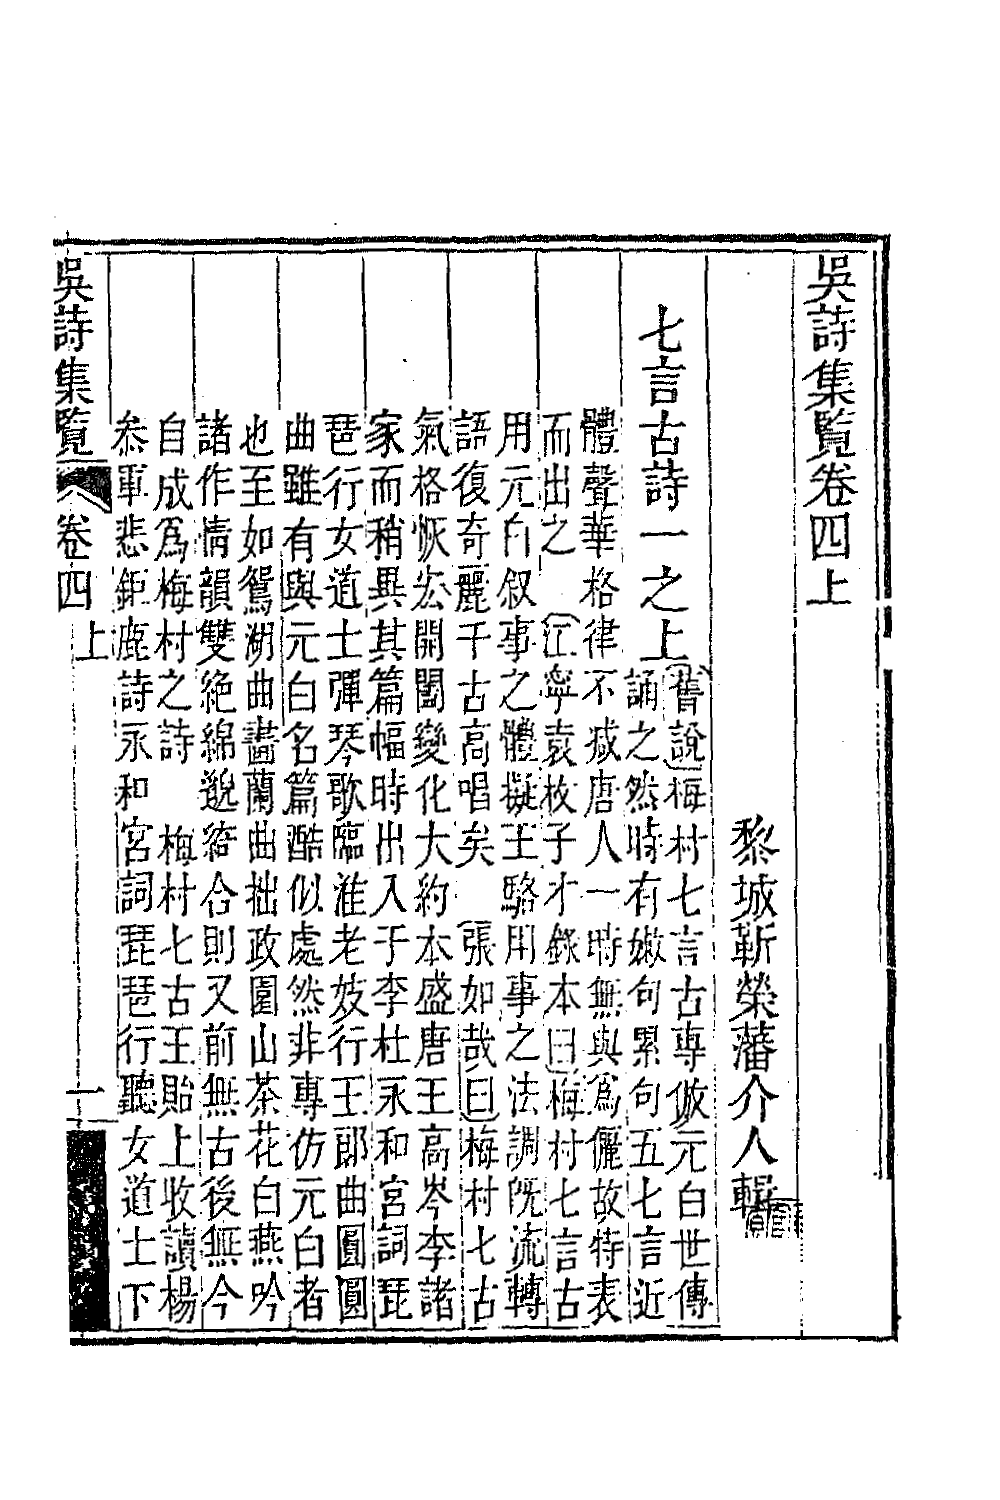 吳詩集覧卷四上
黎城靳榮藩介人輯
七言古詩一之上
舊說梅村七言古專倣元白世傳
誦之然時有嫩句累句五七言近
體聲華格律不减唐人一時無與爲儷故特表
而出之　江寧袁枚子才錄本曰梅村七言古
用元白叙事之體擬王駱用事之法調旣流轉
語復奇麗千古高唱矣　張如哉曰梅村七古
氣格恢宏開闔變化大約本盛唐王高岑李諸
家而稍異其篇幅時出入于李杜永和宮詞琵
琶行女道士彈琴歌臨淮老妓行王郎曲圓圓
曲雖有與元白名篇酷似處然非專仿元白者
也至如鴛湖曲畵蘭曲拙政園山茶花白燕吟
諸作情韻雙絶綿邈綺合則又前無古後無今
自成爲梅村之詩　梅村七古王貽上收讀楊
叅軍悲鉅鹿詩永和宮詞琵琶行聽女道士卞
吳詩集覧
卷四上
一